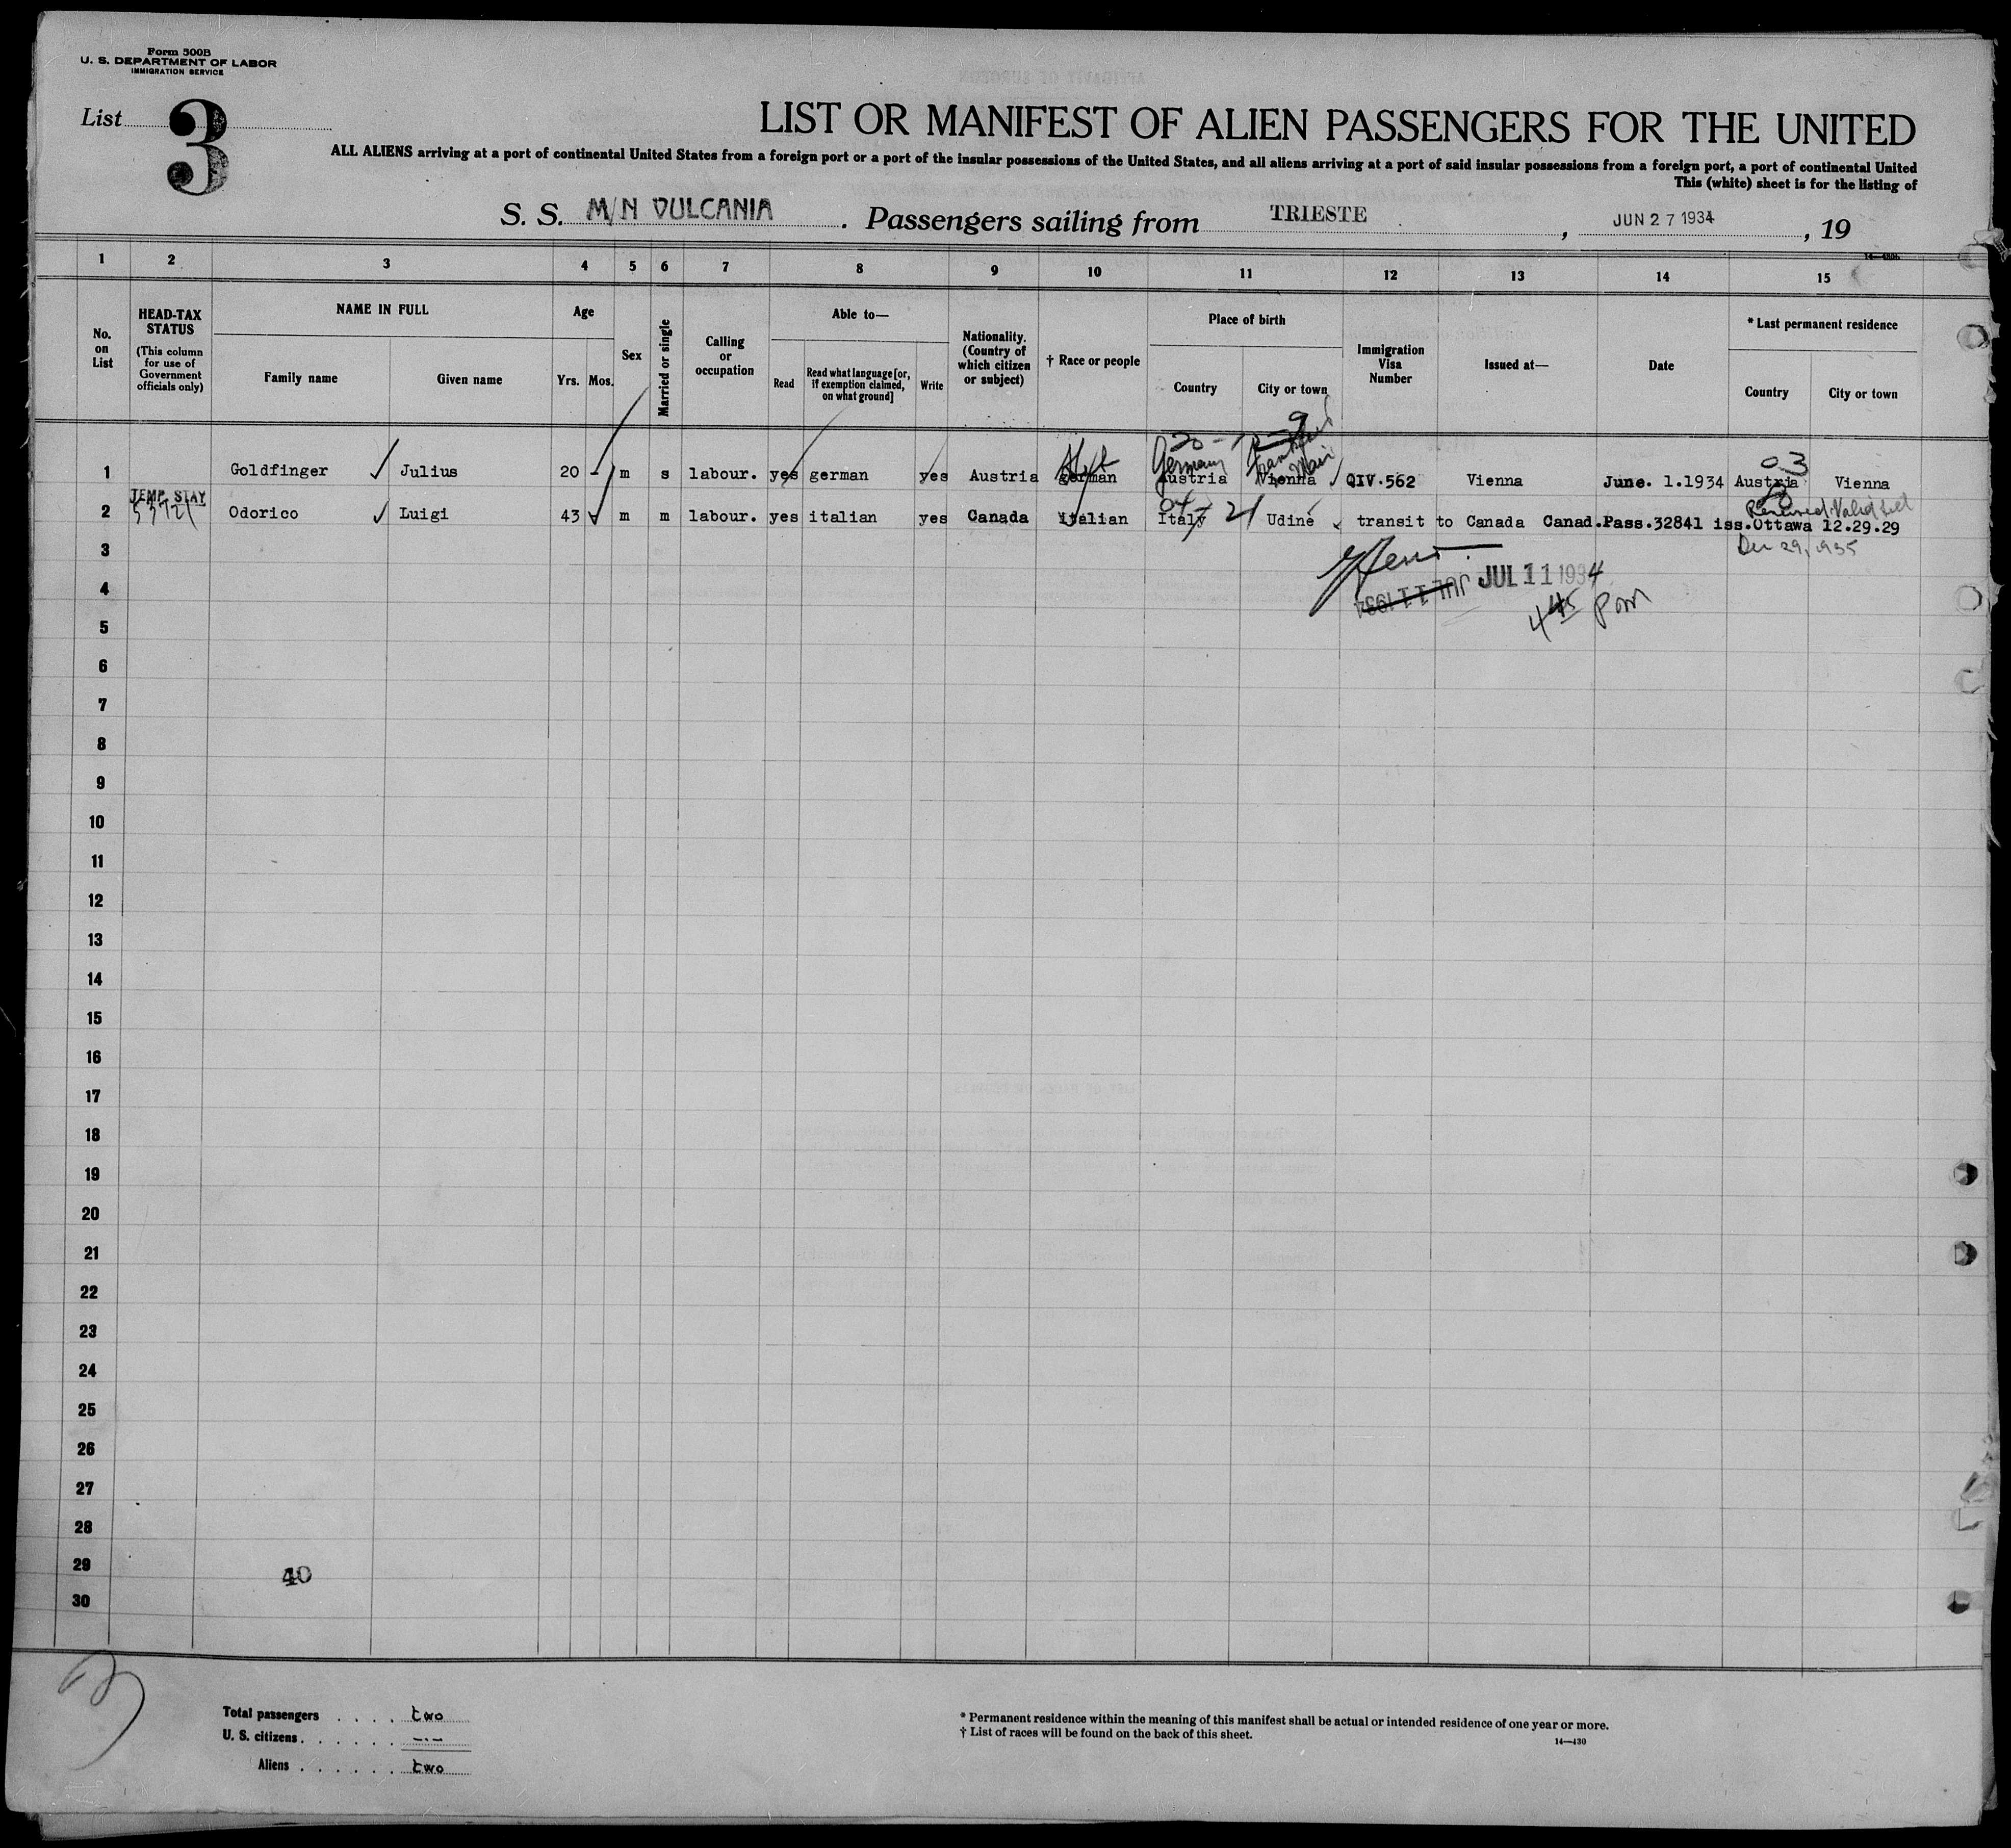 Form 500B
U. S. DEPARTMENT OF LABOR
IMMIGRATION SERVICE
List 3
LIST OR MANIFEST OF ALIEN PASSENGERS FOR THE UNITED
ALL ALIENS arriving at a port of continental United States from a foreign port or a port of the insular possessions of the United States, and all aliens arriving at a port of said insular possessions from a foreign port, a port of continental United
This (white) sheet is for the listing of
S. S. M/N VULCANIA. Passengers sailing from TRIESTE, JUN 27 1934, 19
1 2 3 4 5 6 7 8 9 10 11 12 13 14 15
No. on List
HEAD-TAX STATUS
(This column for use of Government officials only)
NAME IN FULL
Family name
Given name
Age
Yrs. Mos.
Sex
Married or single
Calling or occupation
Able to—
Read
Read what language [or, if exemption claimed, on what ground]
Write
Nationality. (Country of which citizen or subject)
† Race or people
Place of birth
Country
City or town
Immigration Visa Number
Issued at—
Date
* Last permanent residence
Country
City or town
03
Germany
1 Goldfinger Julius 20 - m s labour. yes german yes Austria german Austria Vienna QIV.562 Vienna June. 1.1934 Austria Vienna
TEMP. STAY
04 21
2 Odorico Luigi 43 m m labour. yes italian yes Canada italian Italy Udine transit to Canada Canad.Pass.32841 iss.Ottawa 12.29.29
Renewed Valid
Dec 29, 1935
3
JUL 11 1934 JUL 11 1934
4
445 pm
5
6
7
8
9
10
11
12
13
14
15
16
17
18
19
20
21
22
23
24
25
26
27
28
29
40
30
Total passengers . . . . two
U. S. citizens . . . . . . -.-
Aliens . . . . . . two
* Permanent residence within the meaning of this manifest shall be actual or intended residence of one year or more.
† List of races will be found on the back of this sheet.
14—430